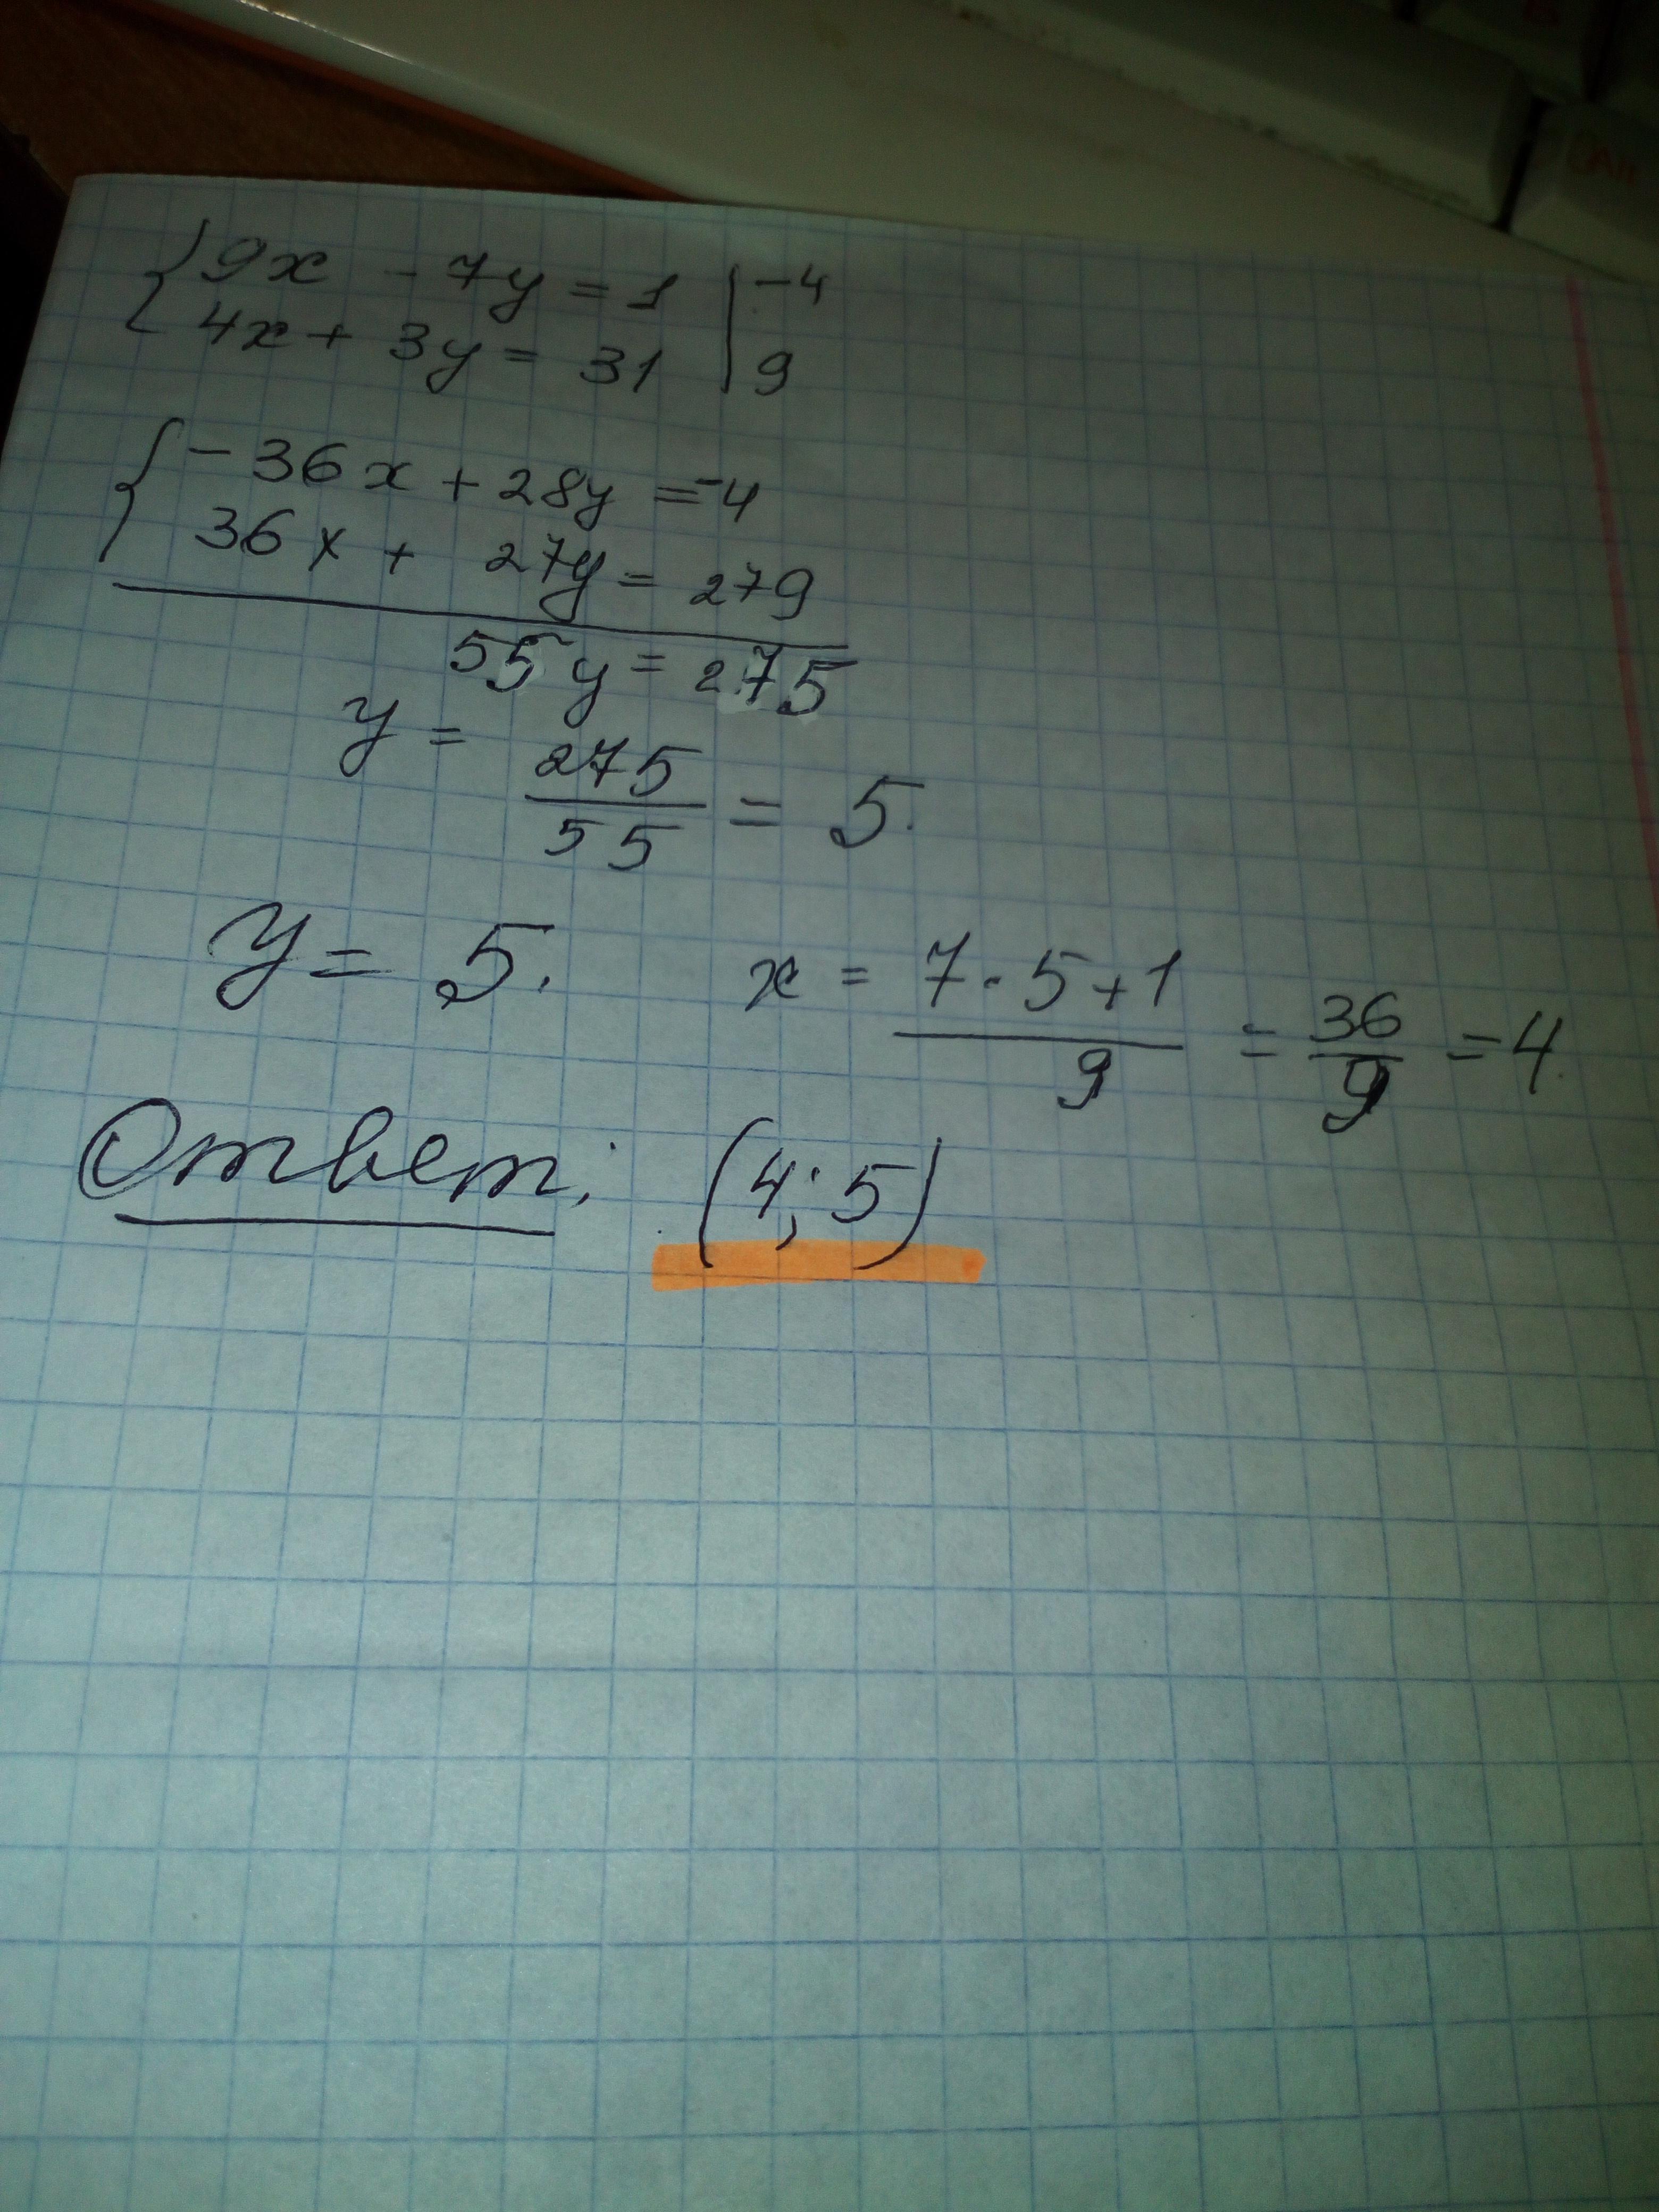 { 9x - 7y = 1 | -4
4x + 3y = 31 | 9
{ -36x + 28y = -4
36x + 27y = 279
55y = 275
y = 275/55 = 5.
y = 5. x = 7·5+1/9 = 36/9 = 4.
Ответ: (4; 5)